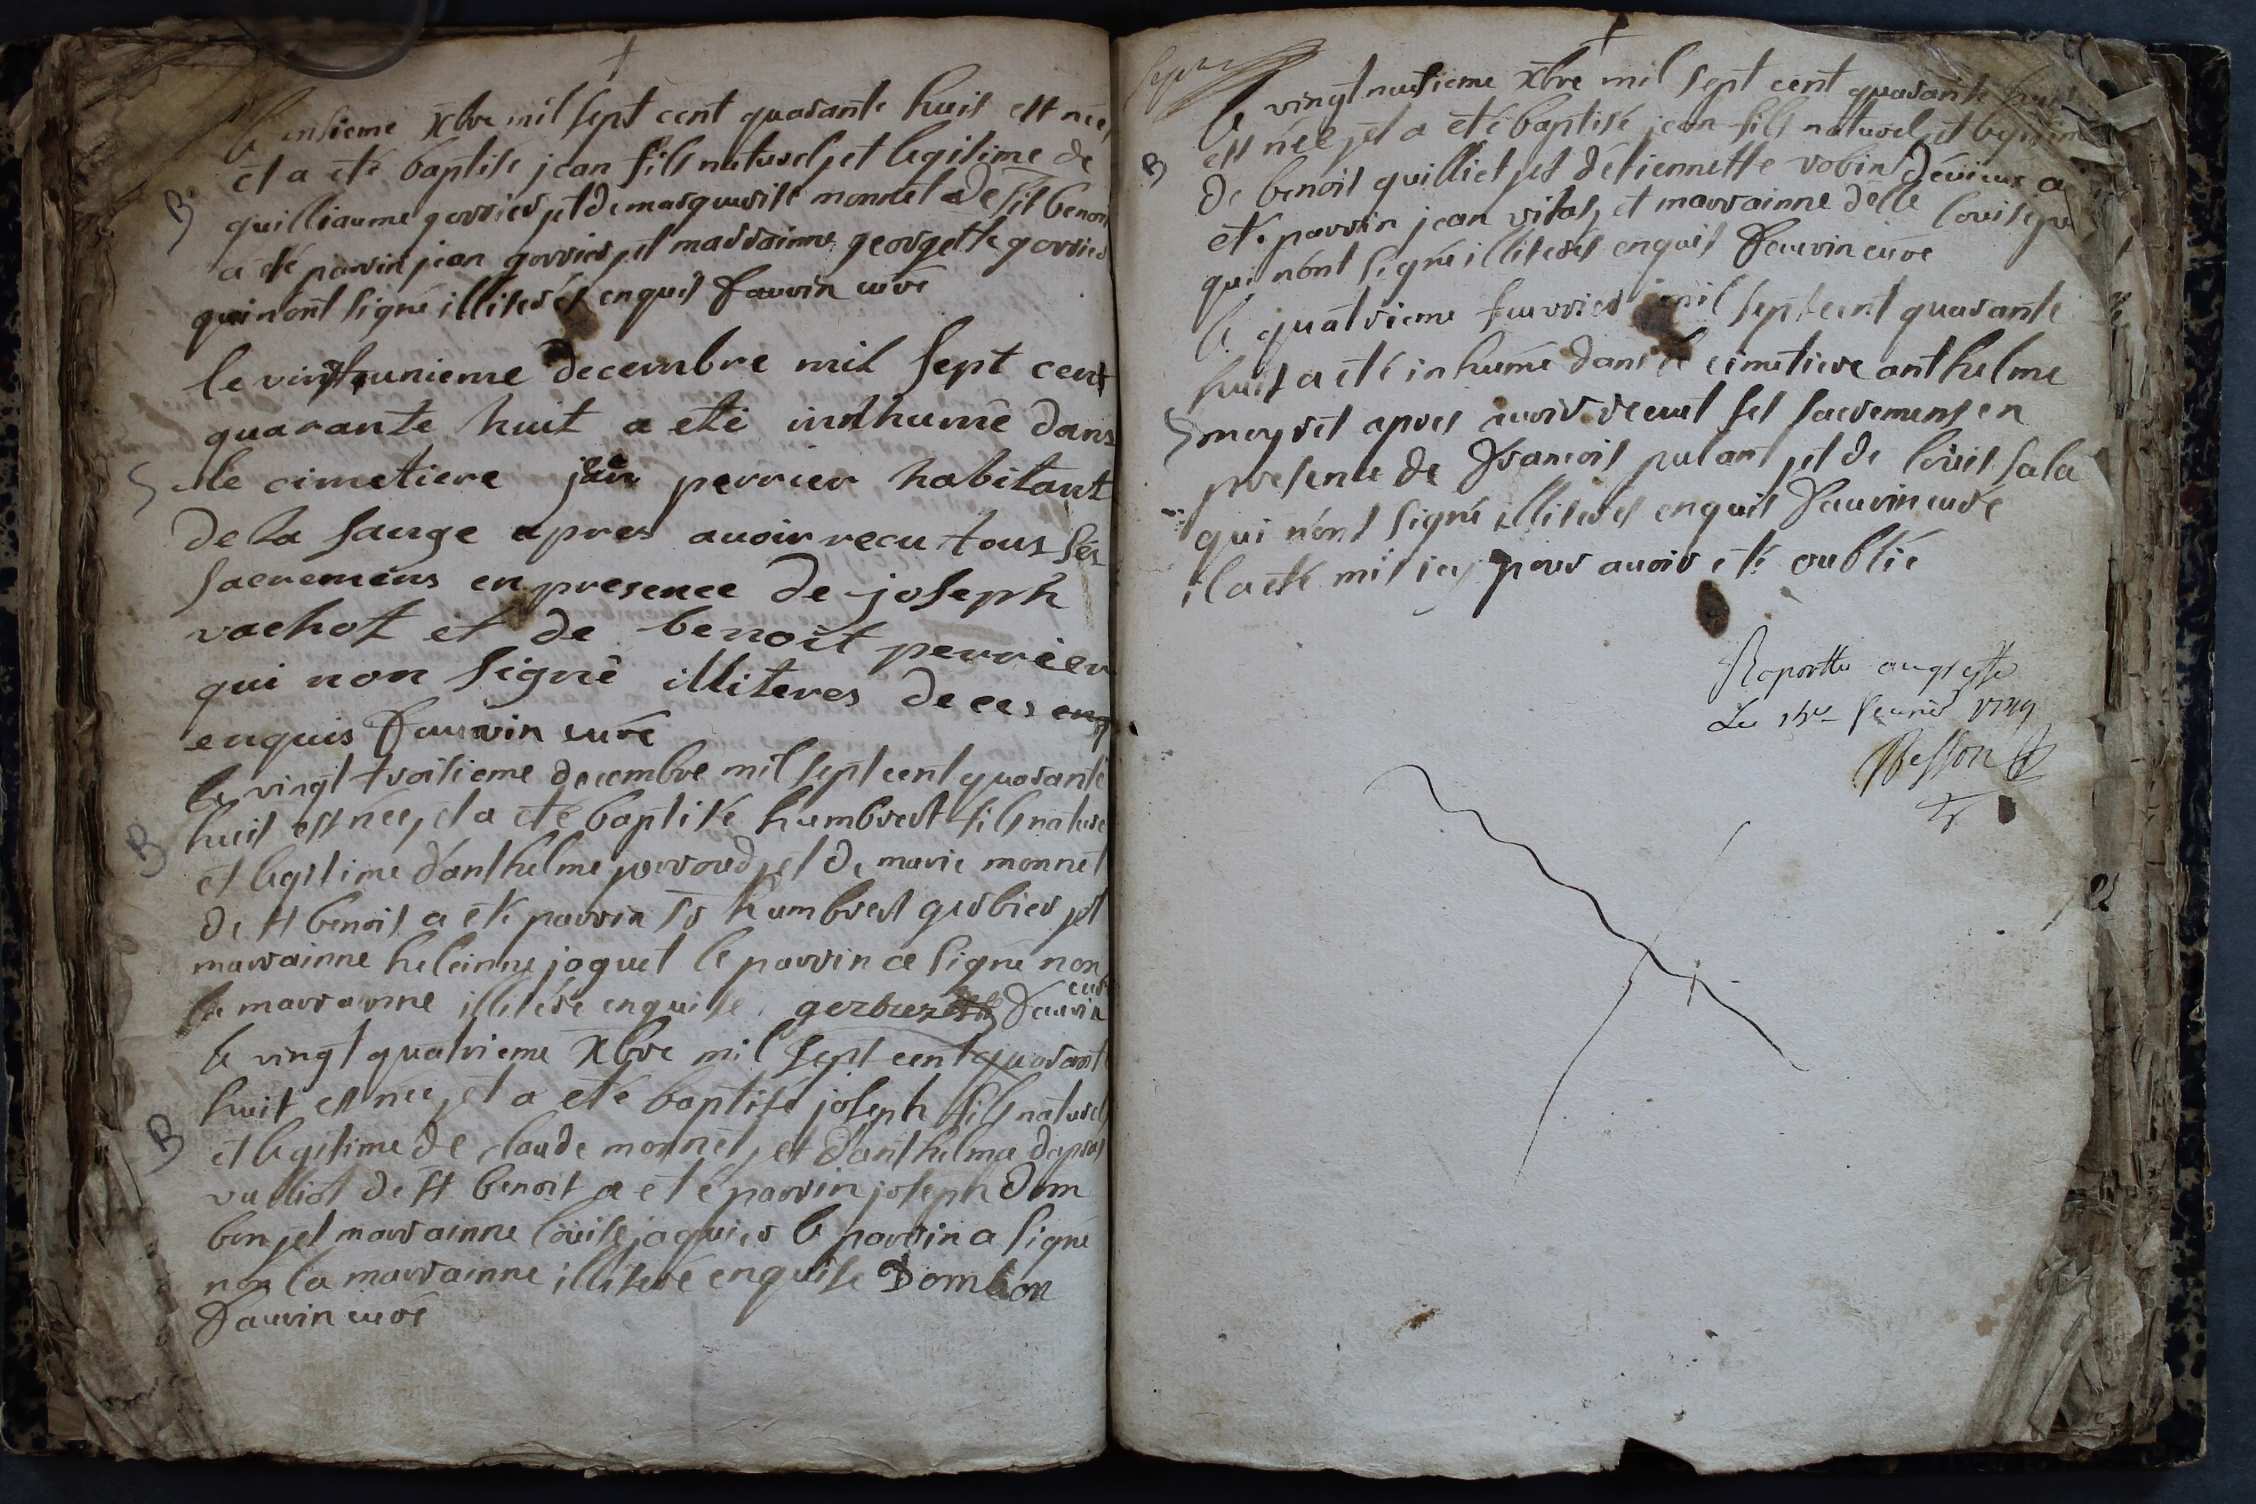 le onsieme xbre mil sept cent quarante huit est née
et a eté baptisé jean fils naturel et legitime de
B
guilliaume gorrier et de marguerite monnet de st benoit
a eté parrin jean gorrier et marrainne georgette gorrier
qui n'ont signé illiterés enquis fauvin curé
le vingt unieme decembre mil sept cent
quarante huit a eté inhumé dans
S
le cimetiere jean perrier habitant
de la sauge apres auoir recu tous ses
sacremens en presence de joseph
vachot et de benoit perrier
qui non signé illiteres de ces
enquis fauvin curé
le vingt troisieme decembre mil sept cent quarante
huit est née et a eté baptisé humbert fils naturel
B
et legitime d'anthelme perroud et de marie monnet
de st benoit a eté parrin sr humbert gerbier et
marrainne heleinne joguet le parrin a signé non
la marrainne illiterée enquise gerbier fauvin
curé
le vingt quatrieme xbre mil sept cent quarante
huit est née et a eté baptisé joseph fils naturel
B
et legitime de claude monnet et d'anthelma
de st benoit a eté parrin joseph dom
bon et marrainne louise jaquier le parrin a signé
non la marrainne illiteré enquise Dombon
fauvin curé
le vingt neusieme xbre mil sept cent quarante huit
est née et a eté baptisé jean fils naturel et legitime
B
de benoit guilliet et d'etiennette robin a
eté parrin jean vitas et marrainne delle louise
qui n'ont signé illiterés enquis fauvin curé
le quatrieme feurrier mil sept cent quarante
huit a eté inhumé dans le cimetiere anthelme
S
meyret apres auoir receut ses sacremens en
presence de francois pulan et de louis sala
qui n'ont signé illiterés enquis fauvin curé
il a eté mis icy pour auoir eté oublié
Raporttée au greffe
Le feurier 1749
Besson